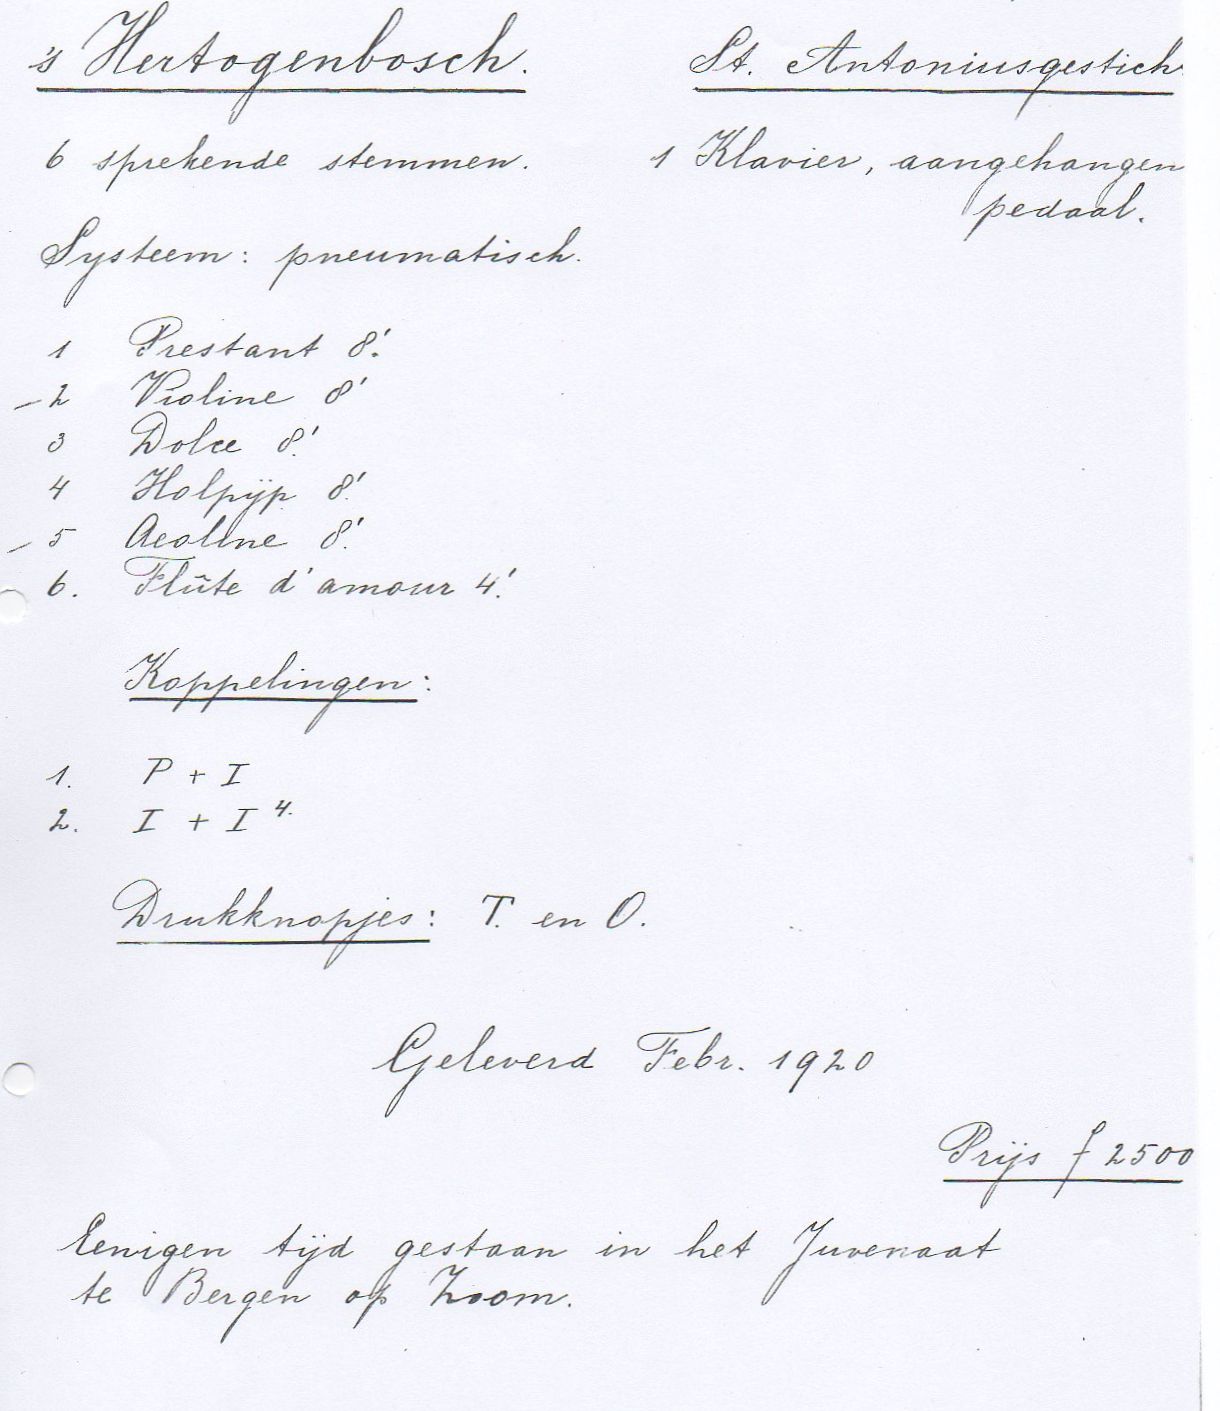 's Hertogenbosch. St. Antoniusgestich
6 sprekende stemmen. 1 Klavier, aangehangen
pedaal.
Systeem: pneumatisch.
1 Prestant 8'.
- 2 Violine 8'
3 Dolce 8'.
4 Holpijp 8'.
- 5 Aeoline 8'.
6. Flûte d'amour 4'.
Koppelingen:
1. P + I
2. I + I 4.
Drukknopjes: T. en O.
Geleverd Febr. 1920
Prijs f 2500
Eenigen tijd gestaan in het Juvenaat
te Bergen op Zoom.